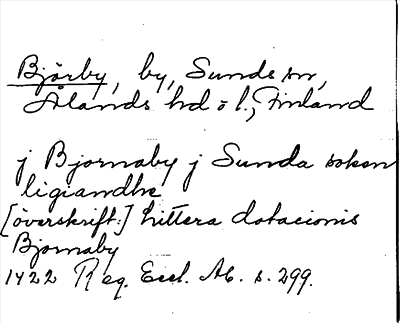 Björby, by, Sunds sn,
Ålands hd o l., Finland
j Bjornaby j Sunda sokn
ligiandhe
[överskrift:] littera dotacionis
Bjornaby
1422 Reg. Eccl. Ab. s. 299.